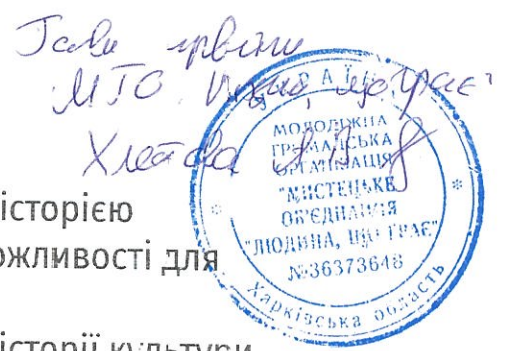 МГО "Людина, що грає"
УКРАЇНА
МОЛОДІЖНА
ГРОМАДСЬКА
ОРГАНІЗАЦІЯ
"МИСТЕЦЬКЕ
ОБ'ЄДНАННЯ
"ЛЮДИНА, ЩО ГРАЄ"
№36373648
Харківська область
історією
ожливості для
історії культури